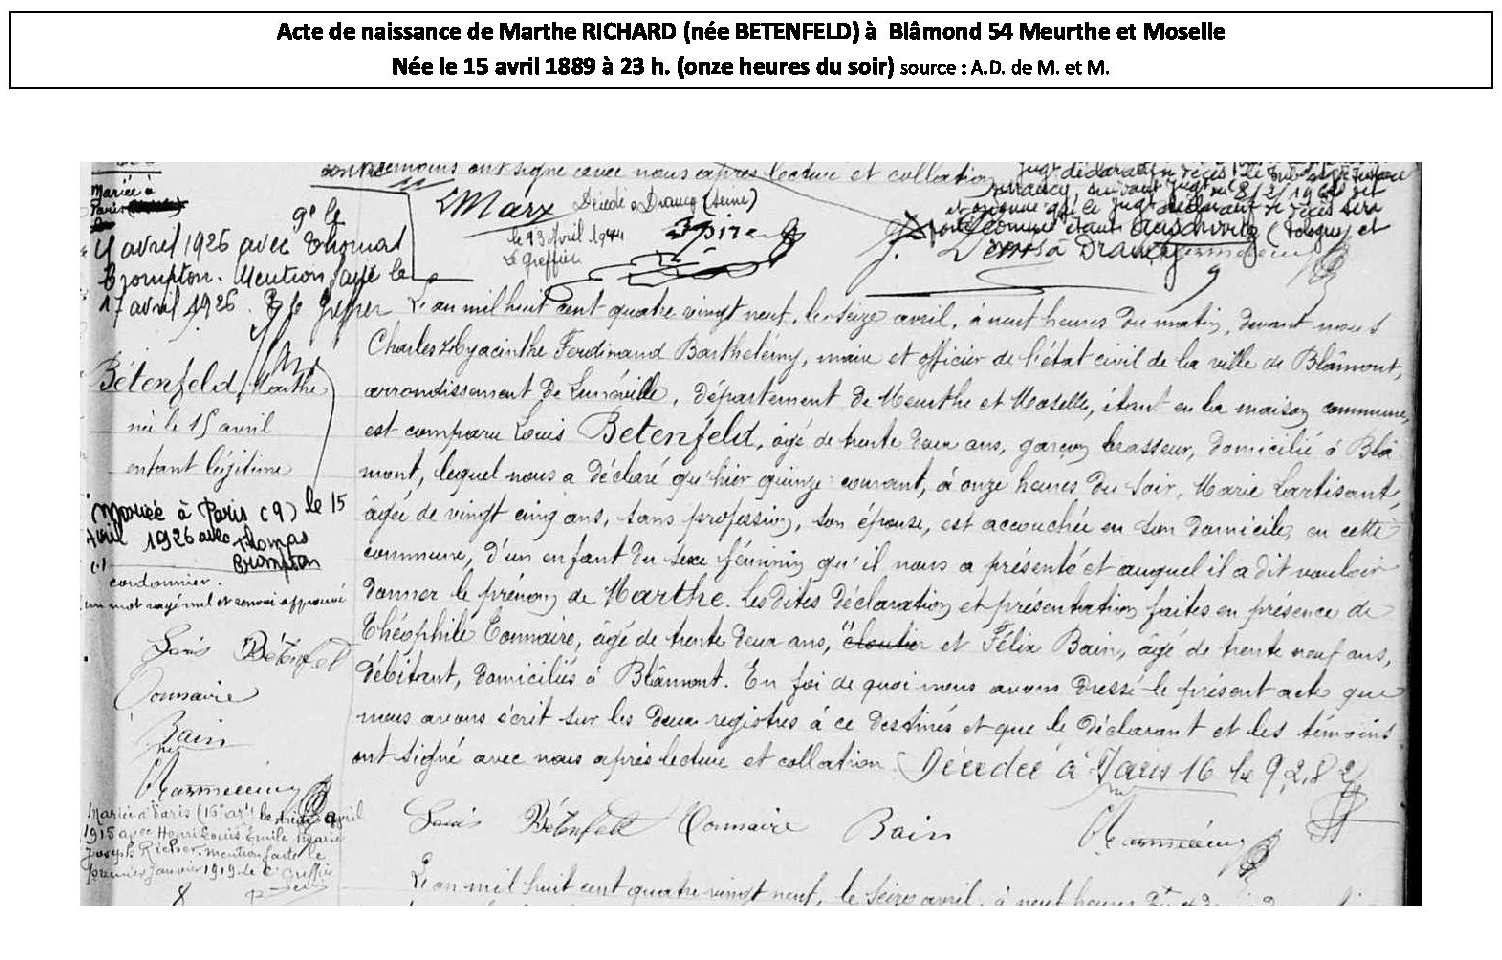 Acte de naissance de Marthe RICHARD (née BETENFELD) à Blâmond 54 Meurthe et Moselle
Née le 15 avril 1889 à 23 h. (onze heures du soir) source : A.D. de M. et M.
témoins ont signé avec nous après lecture et collation
Mariée à
Paris
9e le
4 avril 1926 avec Thomas
Crompton. Mention faite le
17 avril 1926. Le Greffier
Marx Décédé à Drancy (Seine)
le 13 avril 1944
Le greffier
Spire
Auschwitz (Pologne) et
Drancy
L'an mil huit cent quatre vingt neuf, le seize avril, à neuf heures du matin, devant nous
Charles Hyacinthe Ferdinand Barthelémy, maire et officier de l'état civil de la ville de Blâmont,
arrondissement de Lunéville, département de Meurthe et Moselle, étant en la maison commune,
est comparu Louis Betenfeld, âgé de trente deux ans, garçon brasseur, domicilié à Blâ
mont, lequel nous a déclaré qu'hier quinze courant, à onze heures du soir, Marie Lartisant,
âgée de vingt cinq ans, sans profession, son épouse, est accouchée en son domicile, en cette
commune, d'un enfant du sexe féminin qu'il nous a présenté et auquel il a dit vouloir
donner le prénom de Marthe. Les dites déclaration et présentation faites en présence de
Théophile Connaire, âgé de trente deux ans, cloutier et Félix Bain, âgé de trente neuf ans,
débitant, domiciliés à Blâmont. En foi de quoi nous avons dressé le présent acte que
nous avons écrit sur les deux registres à ce destinés et que le déclarant et les témoins
ont signé avec nous après lecture et collation. Décédée à Paris 16 le 9.2.82
Bétenfeld, Marthe
née le 15 avril
enfant légitime
Mariée à Paris (9) le 15
Avril 1926 avec Thomas
Crompton
cordonnier.
un mot rayé nul et renvoi approuvé
Louis Bétenfeld
Connaire
Bain
Mariée à Paris (16e arrt) le avril
1915 avec Henri Louis Emile Marie
Joseph Richer. Mention faite le
premier janvier 1919 le Cis Greffier
Louis Bétenfeld Connaire Bain
L'an mil huit cent quatre vingt neuf, le seize avril, à neuf heures
8